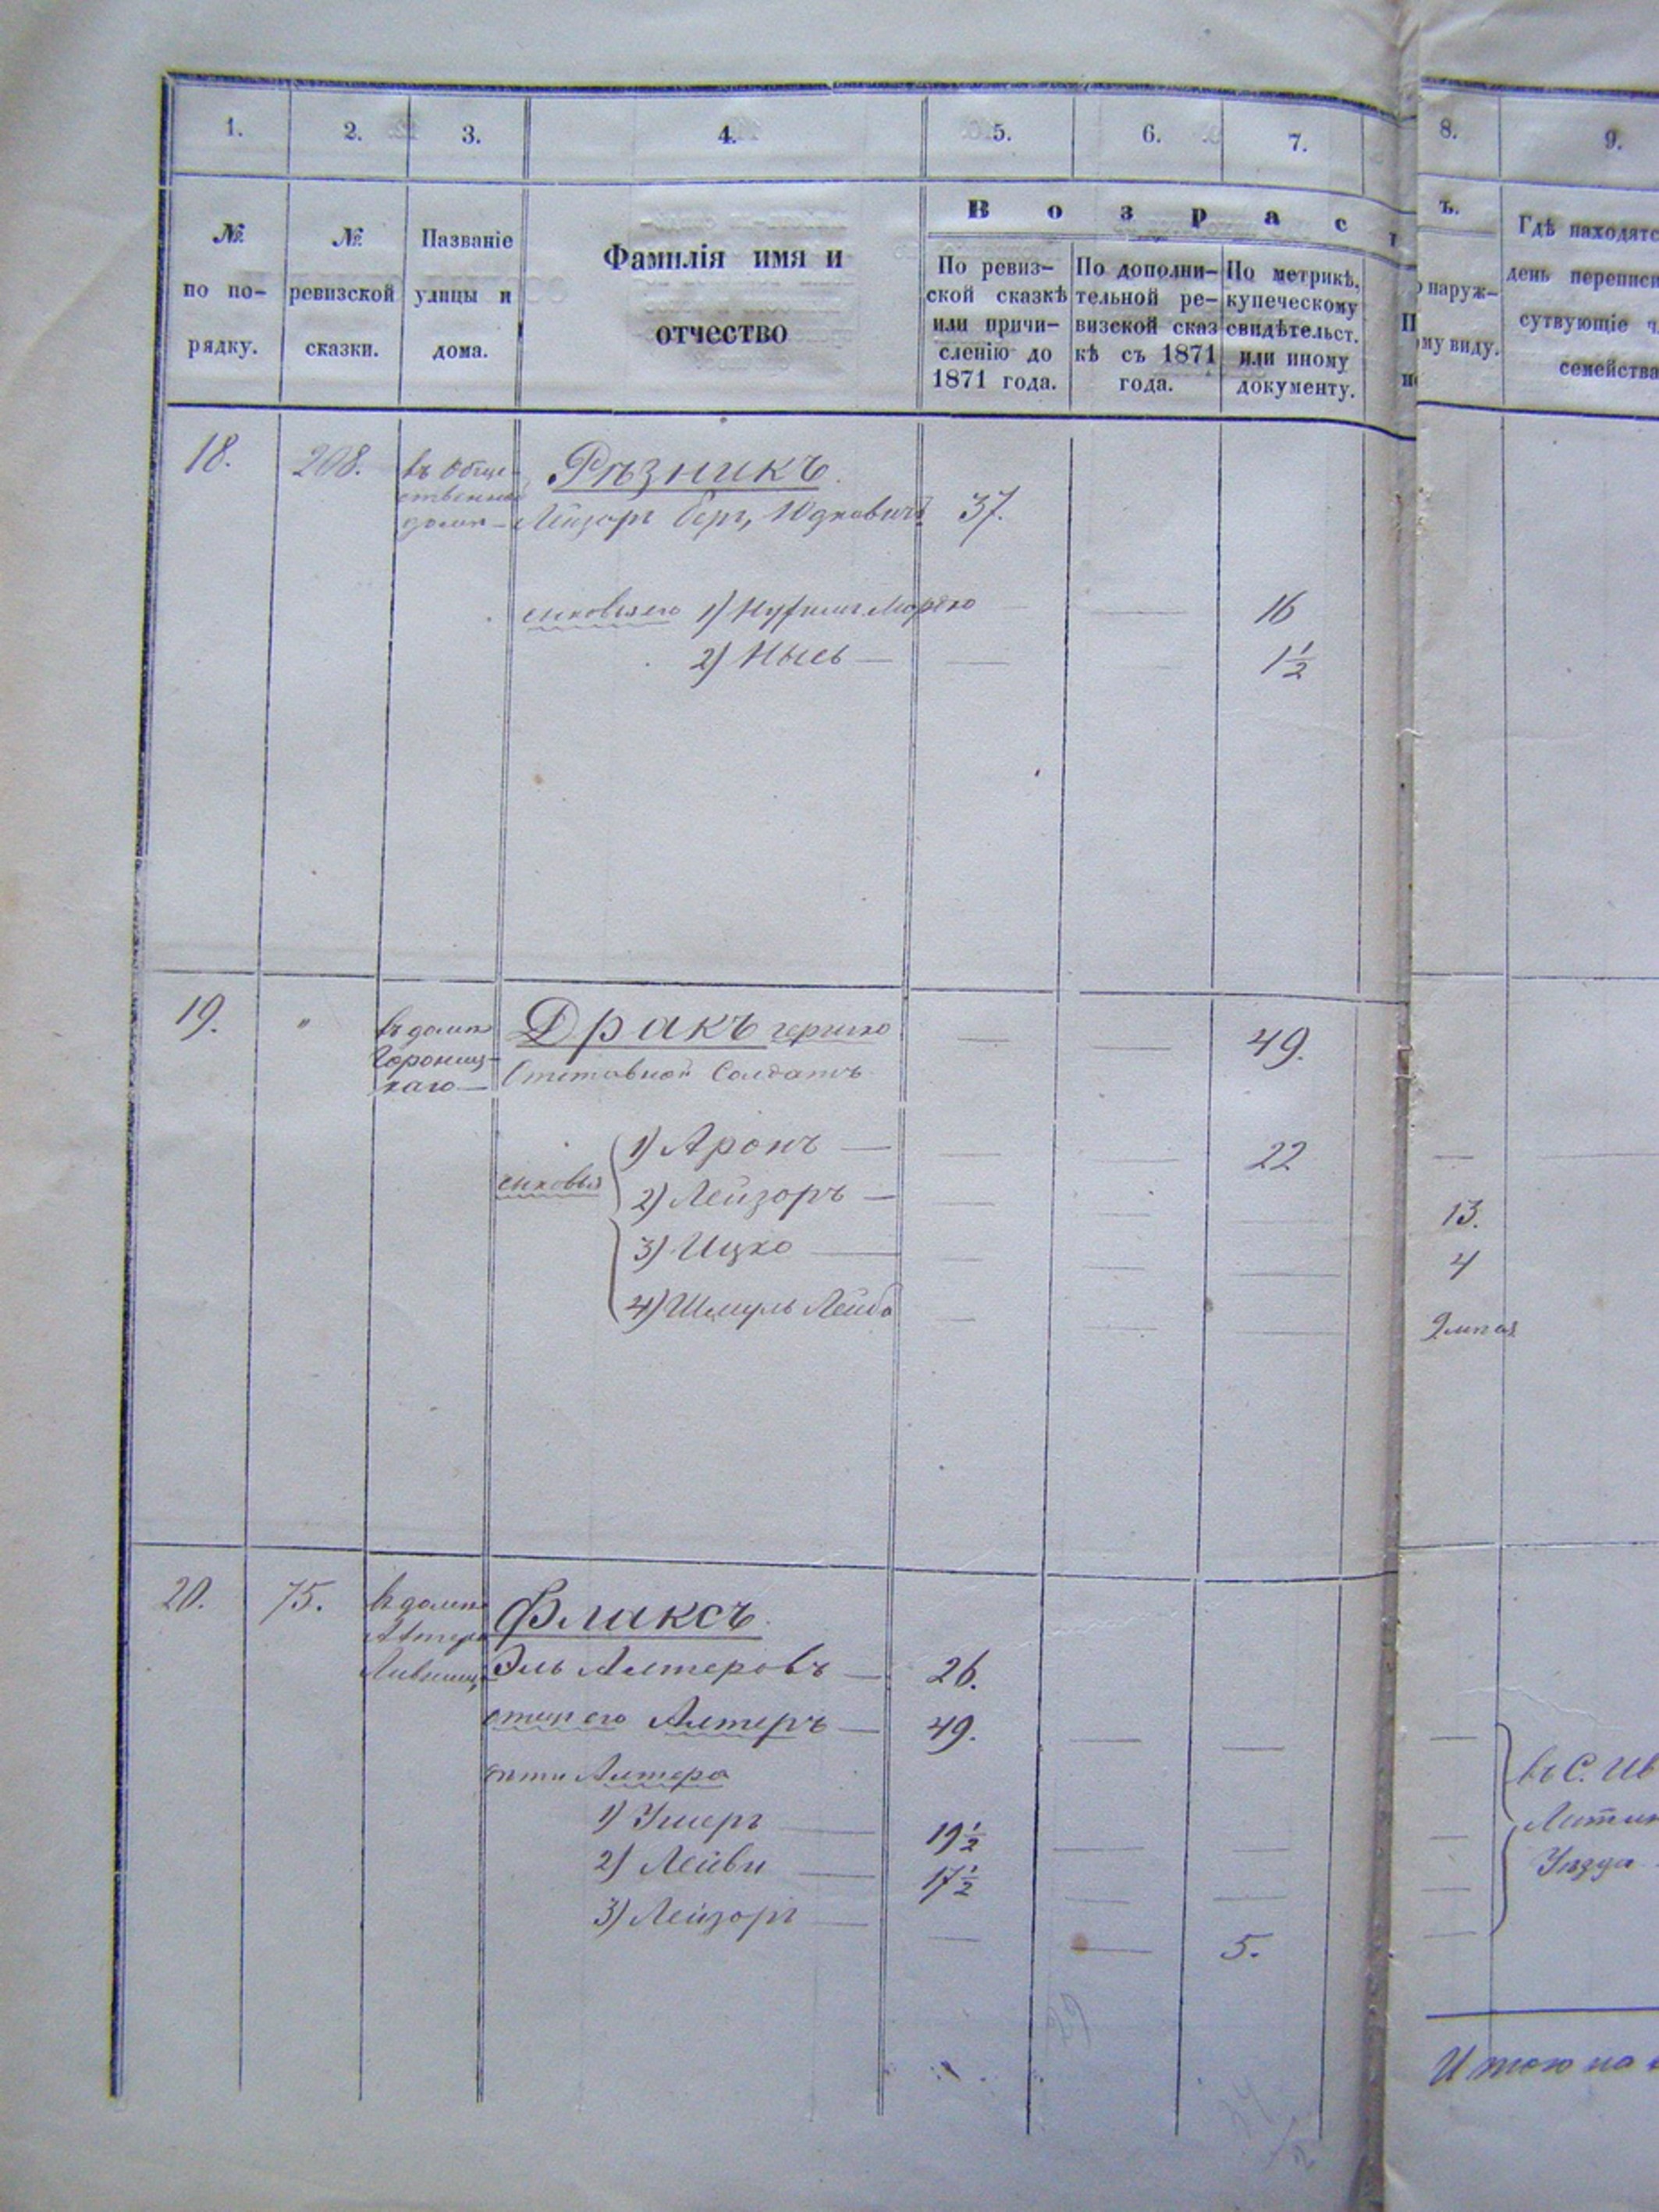 1. 2. 3. 4. 5. 6. 7. 8. 9.
№ по по-рядку.
№ ревизской сказки.
Названіе улицы и дома.
Фамилія имя и отчество
Возрас
ъ.
По ревиз-
ской сказкѣ
или причи-
сленію до
1871 года.
По дополни-
тельной ре-
визской сказ
кѣ съ 1871
года.
По метрикѣ,
купеческому
свидѣтельст.
или иному
документу.
наруж-
ому виду.
Гдѣ находятс
день переписи
сутвующіе ч
семейства
18. 208. въ Обще- Рѣзникъ.
ственной
домѣ Лейзоръ Берг, Юдковичъ 37.
сыновья его 1) Мордко 16
2) Нысь 1½
19. " въ домѣ Дракъ Гершко 49.
каго Отставной Солдатъ
сыновья
1) Аронъ 22
2) Лейзоръ 13.
3) Ицко 4
4) Шмуль Лейба
20. 75. въ домѣ Флаксъ.
Алтера Эль Алтеровъ 26.
отецъ его Алтеръ 49.
дѣти Алтера
1) Ушеръ 19½
2) Лейви 17½
3) Лейзоръ 5.
въ С. Ив
Уѣзда
Итого на